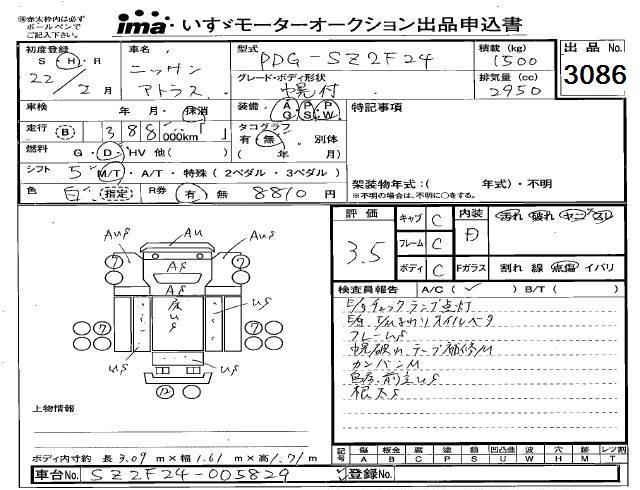 ㊟赤太枠内は必ず
ボールペンで
ご記入下さい。
ima・いすゞモーターオークション出品申込書
初度登録 S・H・R 22年 2月
車名 ニッサン アトラス
型式 PDG-SZ2F24
積載 (kg) 1500
出品 No. 3086
グレード・ボディ形状 幌付
排気量 (cc) 2950
車検 年 月・抹消
装備 AC PS PW
特記事項
走行 (B) 388,000km「 」
タコグラフ 有・無・別体
( 年 月)
燃料 G・D・HV 他( )
シフト 5 M/T・A/T・特殊 (2ペダル・3ペダル)
架装物年式:( 年式)・不明
※不明の場合は、不明に○をする。
色 白 指定 R券 有 無 8810 円
評価 3.5
キャブ C
フレーム C
ボディ C
内装 D
汚れ 破れ ヤニ スレ
Fガラス 割れ 線 点傷 イバリ
AuS Au AuS
AS
AS
床
uS
uS
uS
uS
7 7
7 7
12
検査員報告 A/C( ✓ ) B/T( )
E/gチェックランプ点灯
E/g T/Mまわりオイルベタ
フレームS
幌破れ テープ補修M
カンバンM
鳥居、前立uS
根太S
上物情報
ボディ内寸約 長 3.09 m×幅 1.61 m×高 1.71 m
記号 傷A 板金B 腐C 凹P 塗S 錆U 凹凸曲W 波H 穴M 跡 レツ割T
車台No. SZ2F24-005829
登録No.